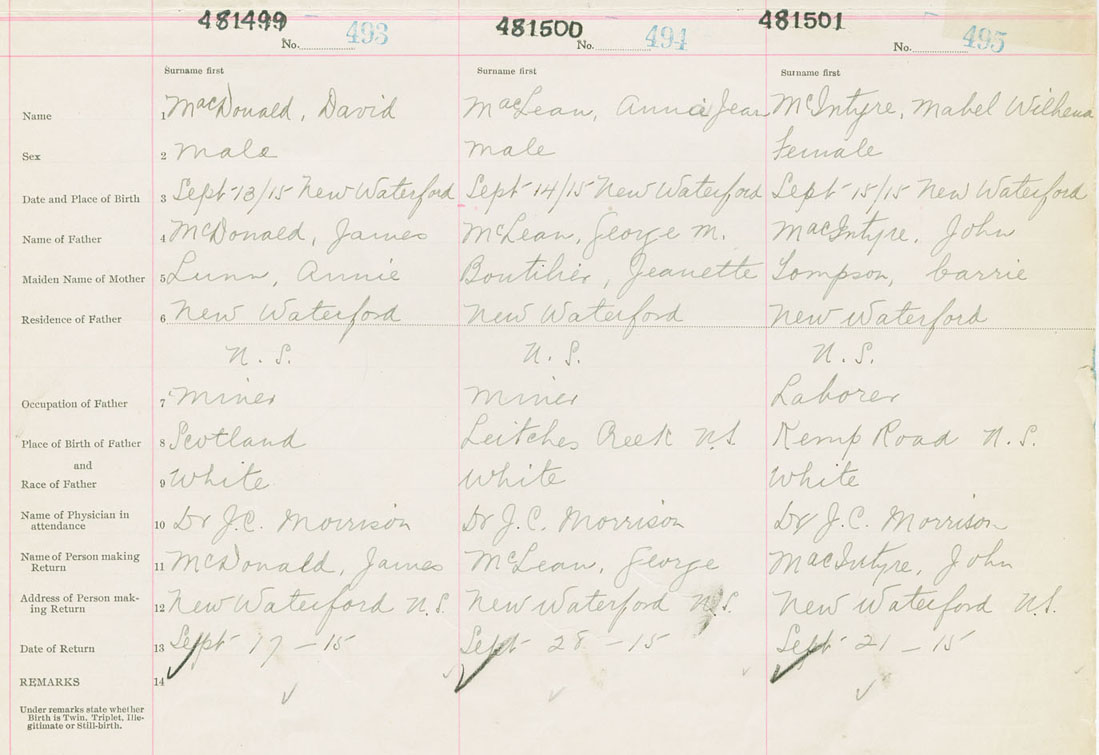 481499 481500 481501
No. 493 No. 494 No. 495
Surname first Surname first Surname first
Name 1 MacDonald, David MacLean, Annie Jean McIntyre, Mabel Wilhena
Sex 2 Male Male Female
Date and Place of Birth 3 Sept 13/15 New Waterford Sept 14/15 New Waterford Sept 15/15 New Waterford
Name of Father 4 McDonald, James McLean, George M. MacIntyre, John
Maiden Name of Mother 5 Lunn, Annie Boutilier, Jeanette Tompson, Carrie
Residence of Father 6 New Waterford New Waterford New Waterford
N. S. N. S. N. S.
Occupation of Father 7 Miner Miner Laborer
Place of Birth of Father 8 Scotland Leitches Creek N.S. Kemp Road N. S.
and
Race of Father 9 White White White
Name of Physician in
attendance 10 Dr J. C. Morrison Dr J. C. Morrison Dr J. C. Morrison
Name of Person making
Return 11 McDonald, James McLean, George MacIntyre, John
Address of Person mak-
ing Return 12 New Waterford N.S. New Waterford N.S. New Waterford N.S.
Date of Return 13 Sept 17 - 15 Sept 28 - 15 Sept 21 - 15
REMARKS 14
Under remarks state whether
Birth is Twin, Triplet, Ille-
gitimate or Still-birth.